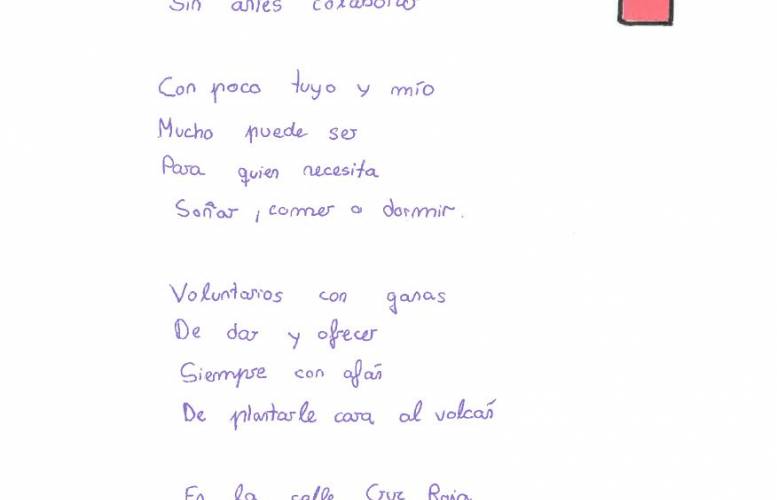 Sin antes colaborar
Con poco tuyo y mío
Mucho puede ser
Para quien necesita
Soñar, comer o dormir.
Voluntarios con ganas
De dar y ofrecer
Siempre con afán
De plantarle cara al volcán
En la calle Cruz Roja